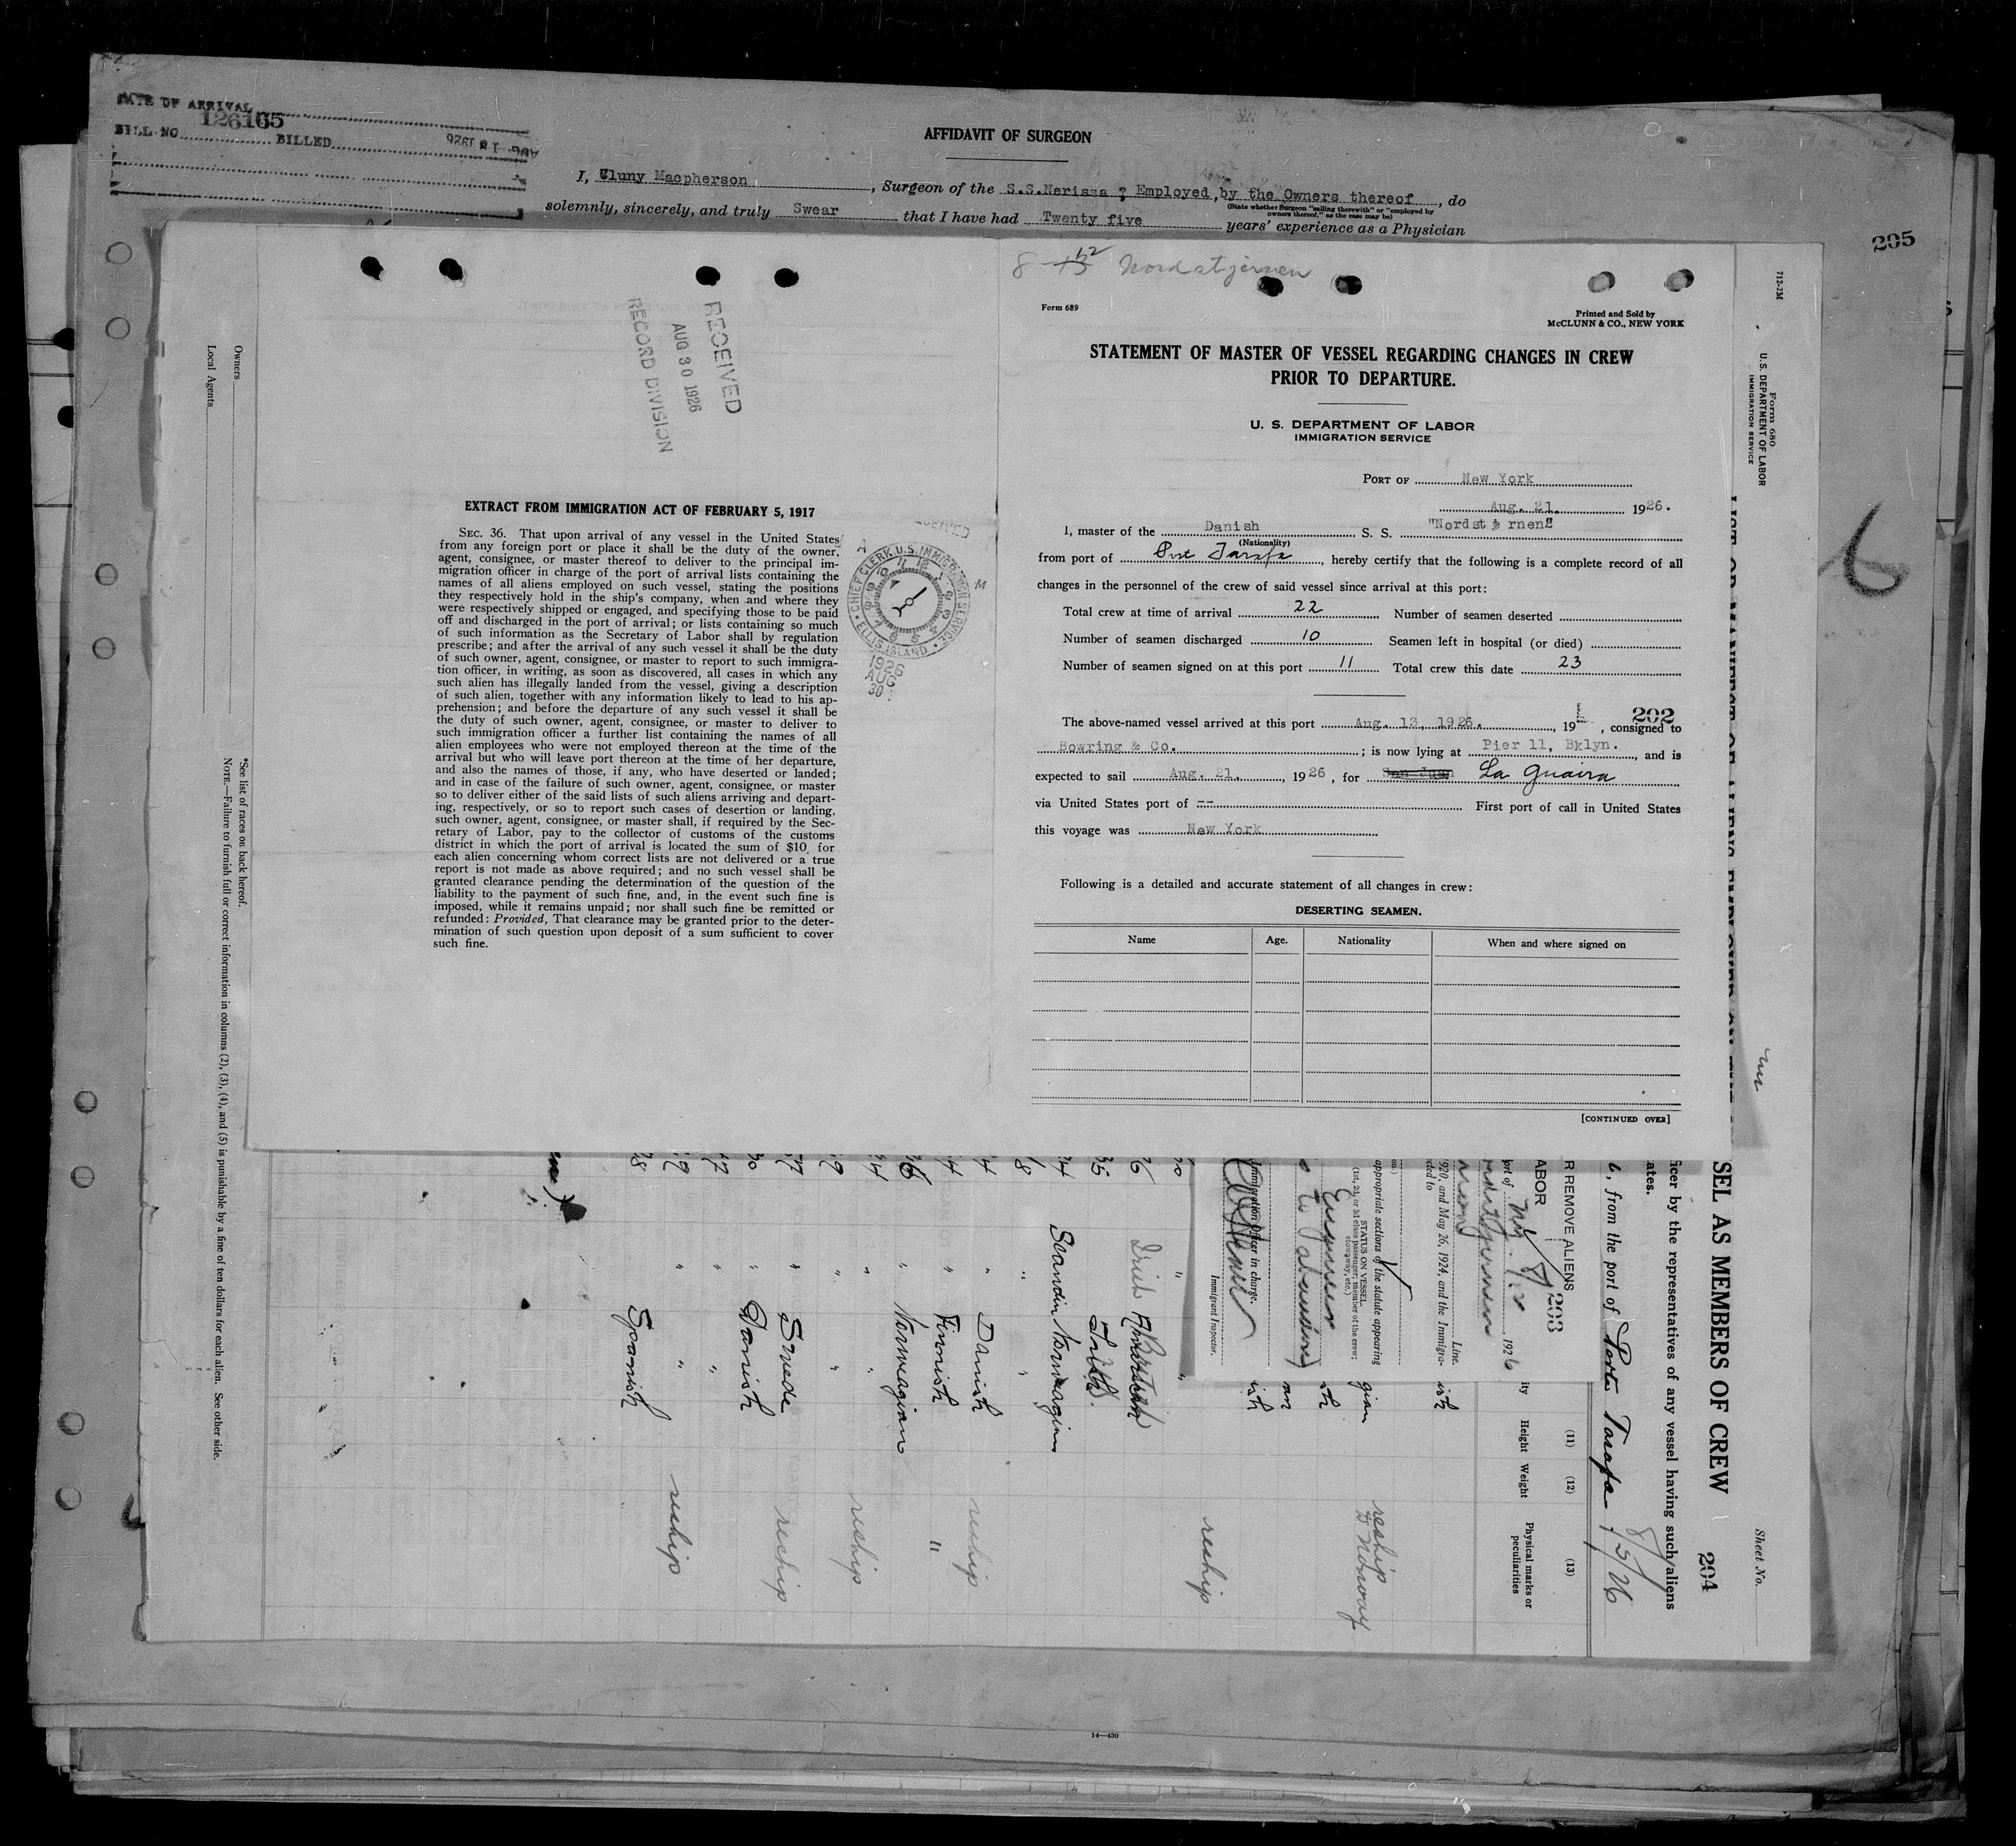 DATE OF ARRIVAL
126165
BILL NO. BILLED
AUG 1 1926
AFFIDAVIT OF SURGEON
I, Cluny Macpherson, Surgeon of the S.S.Nerissa ; Employed, by the Owners thereof, do
(State whether Surgeon "sailing therewith" or "employed by
owners thereof," as the case may be)
solemnly, sincerely, and truly Swear that I have had Twenty five years' experience as a Physician
205
8-12 Nordstjernen
Form 689
Printed and Sold by
McCLUNN & CO., NEW YORK
STATEMENT OF MASTER OF VESSEL REGARDING CHANGES IN CREW
PRIOR TO DEPARTURE.
U. S. DEPARTMENT OF LABOR
IMMIGRATION SERVICE
PORT OF New York
Aug. 21, 1926.
I, master of the Danish S. S. "Nordstjernen"
(Nationality)
from port of Port Tarafa, hereby certify that the following is a complete record of all
changes in the personnel of the crew of said vessel since arrival at this port:
Total crew at time of arrival 22 Number of seamen deserted
Number of seamen discharged 10 Seamen left in hospital (or died)
Number of seamen signed on at this port 11 Total crew this date 23
202
The above-named vessel arrived at this port Aug. 13, 1926. , 19 , consigned to
Bowring & Co. ; is now lying at Pier 11, Bklyn. , and is
expected to sail Aug. 21, , 1926 , for San Juan La Guaira
via United States port of -- First port of call in United States
this voyage was New York
Following is a detailed and accurate statement of all changes in crew:
DESERTING SEAMEN.
Name Age. Nationality When and where signed on
[CONTINUED OVER]
RECEIVED
AUG 30 1926
RECORD DIVISION
EXTRACT FROM IMMIGRATION ACT OF FEBRUARY 5, 1917
SEC. 36. That upon arrival of any vessel in the United States
from any foreign port or place it shall be the duty of the owner,
agent, consignee, or master thereof to deliver to the principal im-
migration officer in charge of the port of arrival lists containing the
names of all aliens employed on such vessel, stating the positions
they respectively hold in the ship's company, when and where they
were respectively shipped or engaged, and specifying those to be paid
off and discharged in the port of arrival; or lists containing so much
of such information as the Secretary of Labor shall by regulation
prescribe; and after the arrival of any such vessel it shall be the duty
of such owner, agent, consignee, or master to report to such immigra-
tion officer, in writing, as soon as discovered, all cases in which any
such alien has illegally landed from the vessel, giving a description
of such alien, together with any information likely to lead to his ap-
prehension; and before the departure of any such vessel it shall be
the duty of such owner, agent, consignee, or master to deliver to
such immigration officer a further list containing the names of all
alien employees who were not employed thereon at the time of the
arrival but who will leave port thereon at the time of her departure,
and also the names of those, if any, who have deserted or landed;
and in case of the failure of such owner, agent, consignee, or master
so to deliver either of the said lists of such aliens arriving and depart-
ing, respectively, or so to report such cases of desertion or landing,
such owner, agent, consignee, or master shall, if required by the Sec-
retary of Labor, pay to the collector of customs of the customs
district in which the port of arrival is located the sum of $10 for
each alien concerning whom correct lists are not delivered or a true
report is not made as above required; and no such vessel shall be
granted clearance pending the determination of the question of the
liability to the payment of such fine, and, in the event such fine is
imposed, while it remains unpaid; nor shall such fine be remitted or
refunded: Provided, That clearance may be granted prior to the deter-
mination of such question upon deposit of a sum sufficient to cover
such fine.
CHIEF CLERK U.S. IMMIGRATION SERVICE
ELLIS ISLAND
1926
AUG
30
Owners
Local Agents
*See list of races on back hereof.
NOTE.—Failure to furnish full or correct information in columns (2), (3), (4), and (5) is punishable by a fine of ten dollars for each alien. See other side.
712-2M
Form 680
U.S. DEPARTMENT OF LABOR
IMMIGRATION SERVICE
Sheet No.
SEL AS MEMBERS OF CREW 204
icer by the representatives of any vessel having such aliens
ates.
6, from the port of Porto Tarafa 8/5/26
(11) (12) (13)
Height Weight Physical marks or
peculiarities
R REMOVE ALIENS
203
ABOR
1926
Line.
920, and May 26, 1924, and the Immigra-
appropriate sections of the statute appearing
STATUS ON VESSEL
(1st, 2d, or 3d class passenger; member of the crew;
stowaway, etc.)
Immigration Officer in charge.
Immigrant Inspector.
reship
to Norway
reship
Irish
Scandin Norwegian
Danish reship
Finnish "
Norwegian
reship
Swede reship
Danish
reship
Spanish
14—430